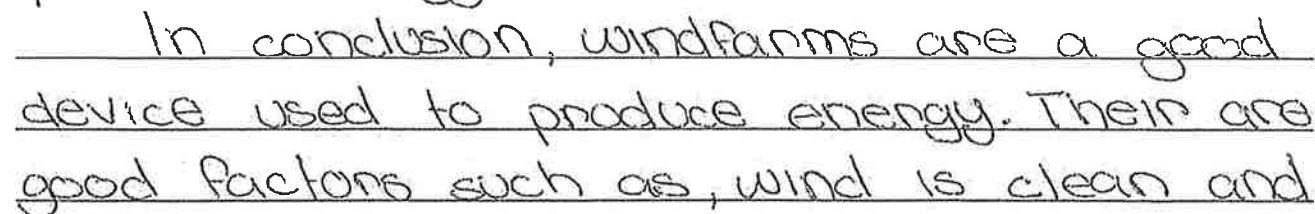 In conclusion, windfarms are a good
device used to produce energy. Their are
good factors such as, wind is clean and